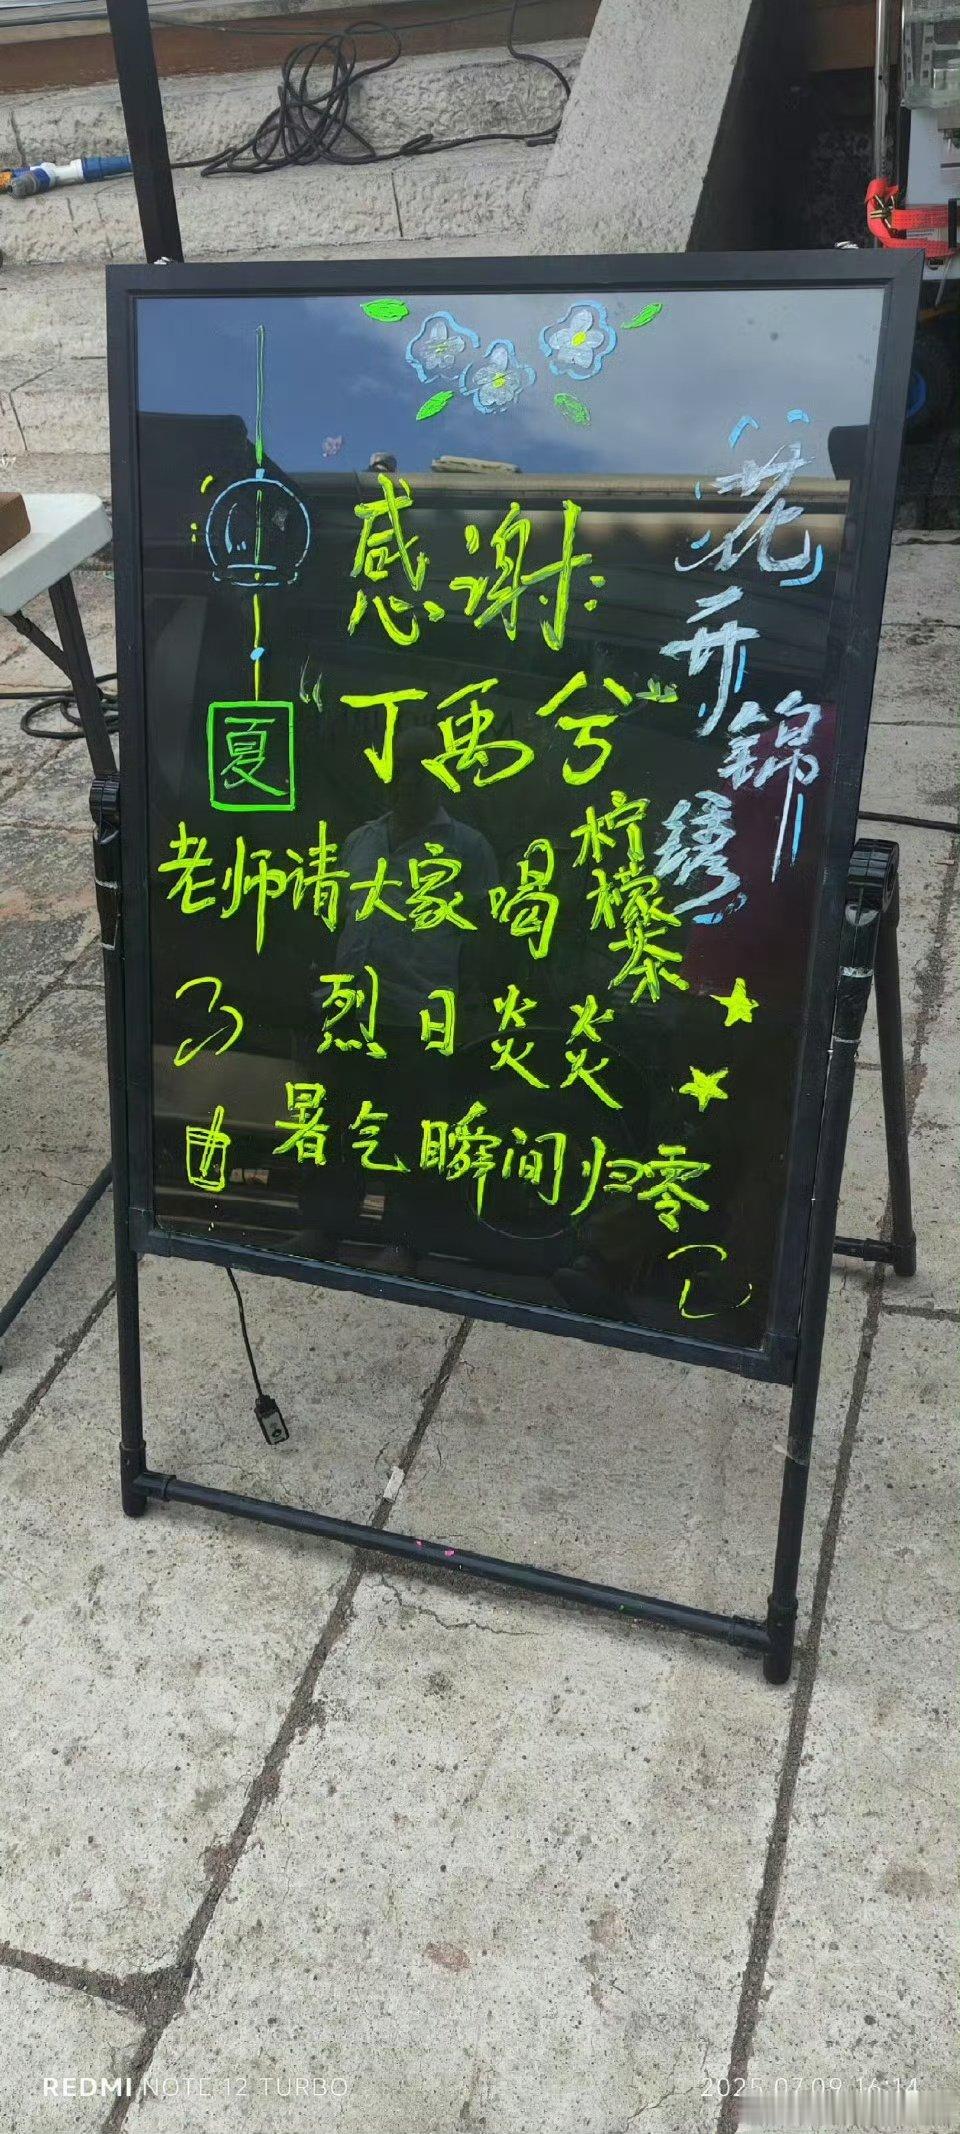 花开锦绣
感谢
"丁禹兮"
夏
老师请大家喝柠檬茶
烈日炎炎
暑气瞬间归零
REDMI NOTE 12 TURBO
2025.07.09 16:14